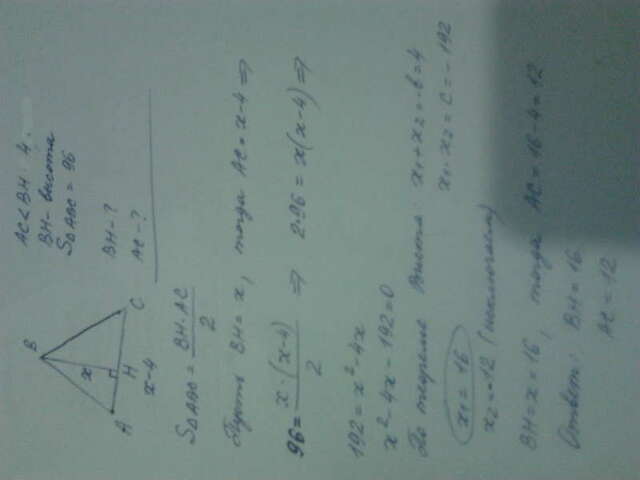 AC < BH 4.
BH - высота
S△ABC = 96
BH - ?
AC - ?
B
x
A
H
C
x-4
S△ABC = BH·AC / 2
Пусть BH = x, тогда AC = x-4 ⇒
96 = x·(x-4) / 2 ⇒ 2·96 = x(x-4) ⇒
192 = x²-4x
x²-4x-192=0
По теореме Виета: x₁+x₂=-b=4
x₁·x₂=c=-192
x₁ = 16
x₂ = -12
BH = x = 16, тогда AC = 16-4 = 12
Ответ: BH = 16
AC = 12